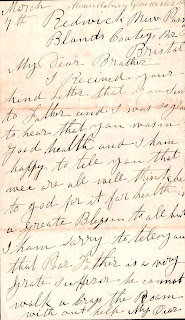 March
7th Redwick New Pas
Bristol
My Dear Brother
I recived your
kind Letter that
to Father and I was so glad
to hear that you was in
good health and I ham
happy to tell you that
wee are all well think be
to god for it for health is
a greate Blesson to all
I ham sarry to tell you
that Poor Father is a very
grate sufferer he cannot
walk a crap the Room
with out help My Dear